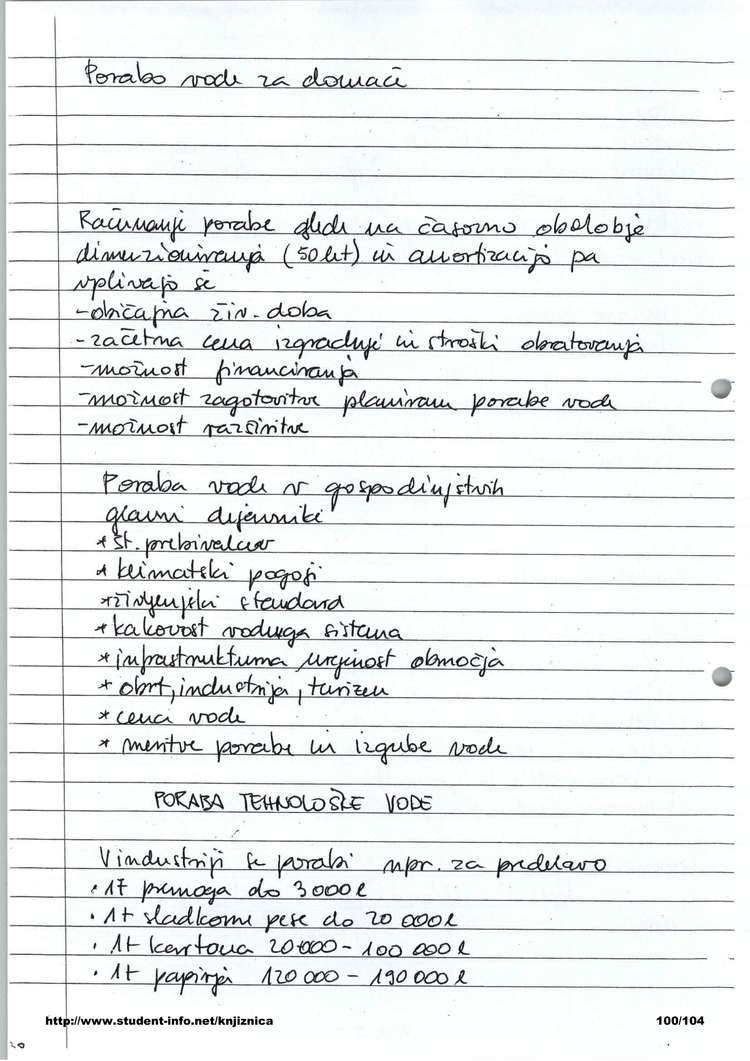 Poraba vode za domače
Računanje porabe glede na časovno obdobje
dimenzioniranja (50 let) in amortizacijo pa
vplivajo še
- običajna živ. doba
- začetna cena izgradnje in stroški obratovanja
- možnost financiranja
- možnost zagotovitve planirane porabe vode
- možnost razširitve
Poraba vode v gospodinjstvih
glavni dejavniki
* št. prebivalcev
* klimatski pogoji
* življenjski standard
* kakovost vodnega sistema
* infrastrukturna urejenost območja
* obrt, industrija, turizem
* cena vode
* meritve porabe in izgube vode
PORABA TEHNOLOŠKE VODE
V industriji se porabi npr. za predelavo
• 1t premoga do 3000 l
• 1t sladkorne pese do 20 000 l
• 1t kartona 20 000 - 100 000 l
• 1t papirja 120 000 - 190 000 l
http://www.student-info.net/knjiznica 100/104